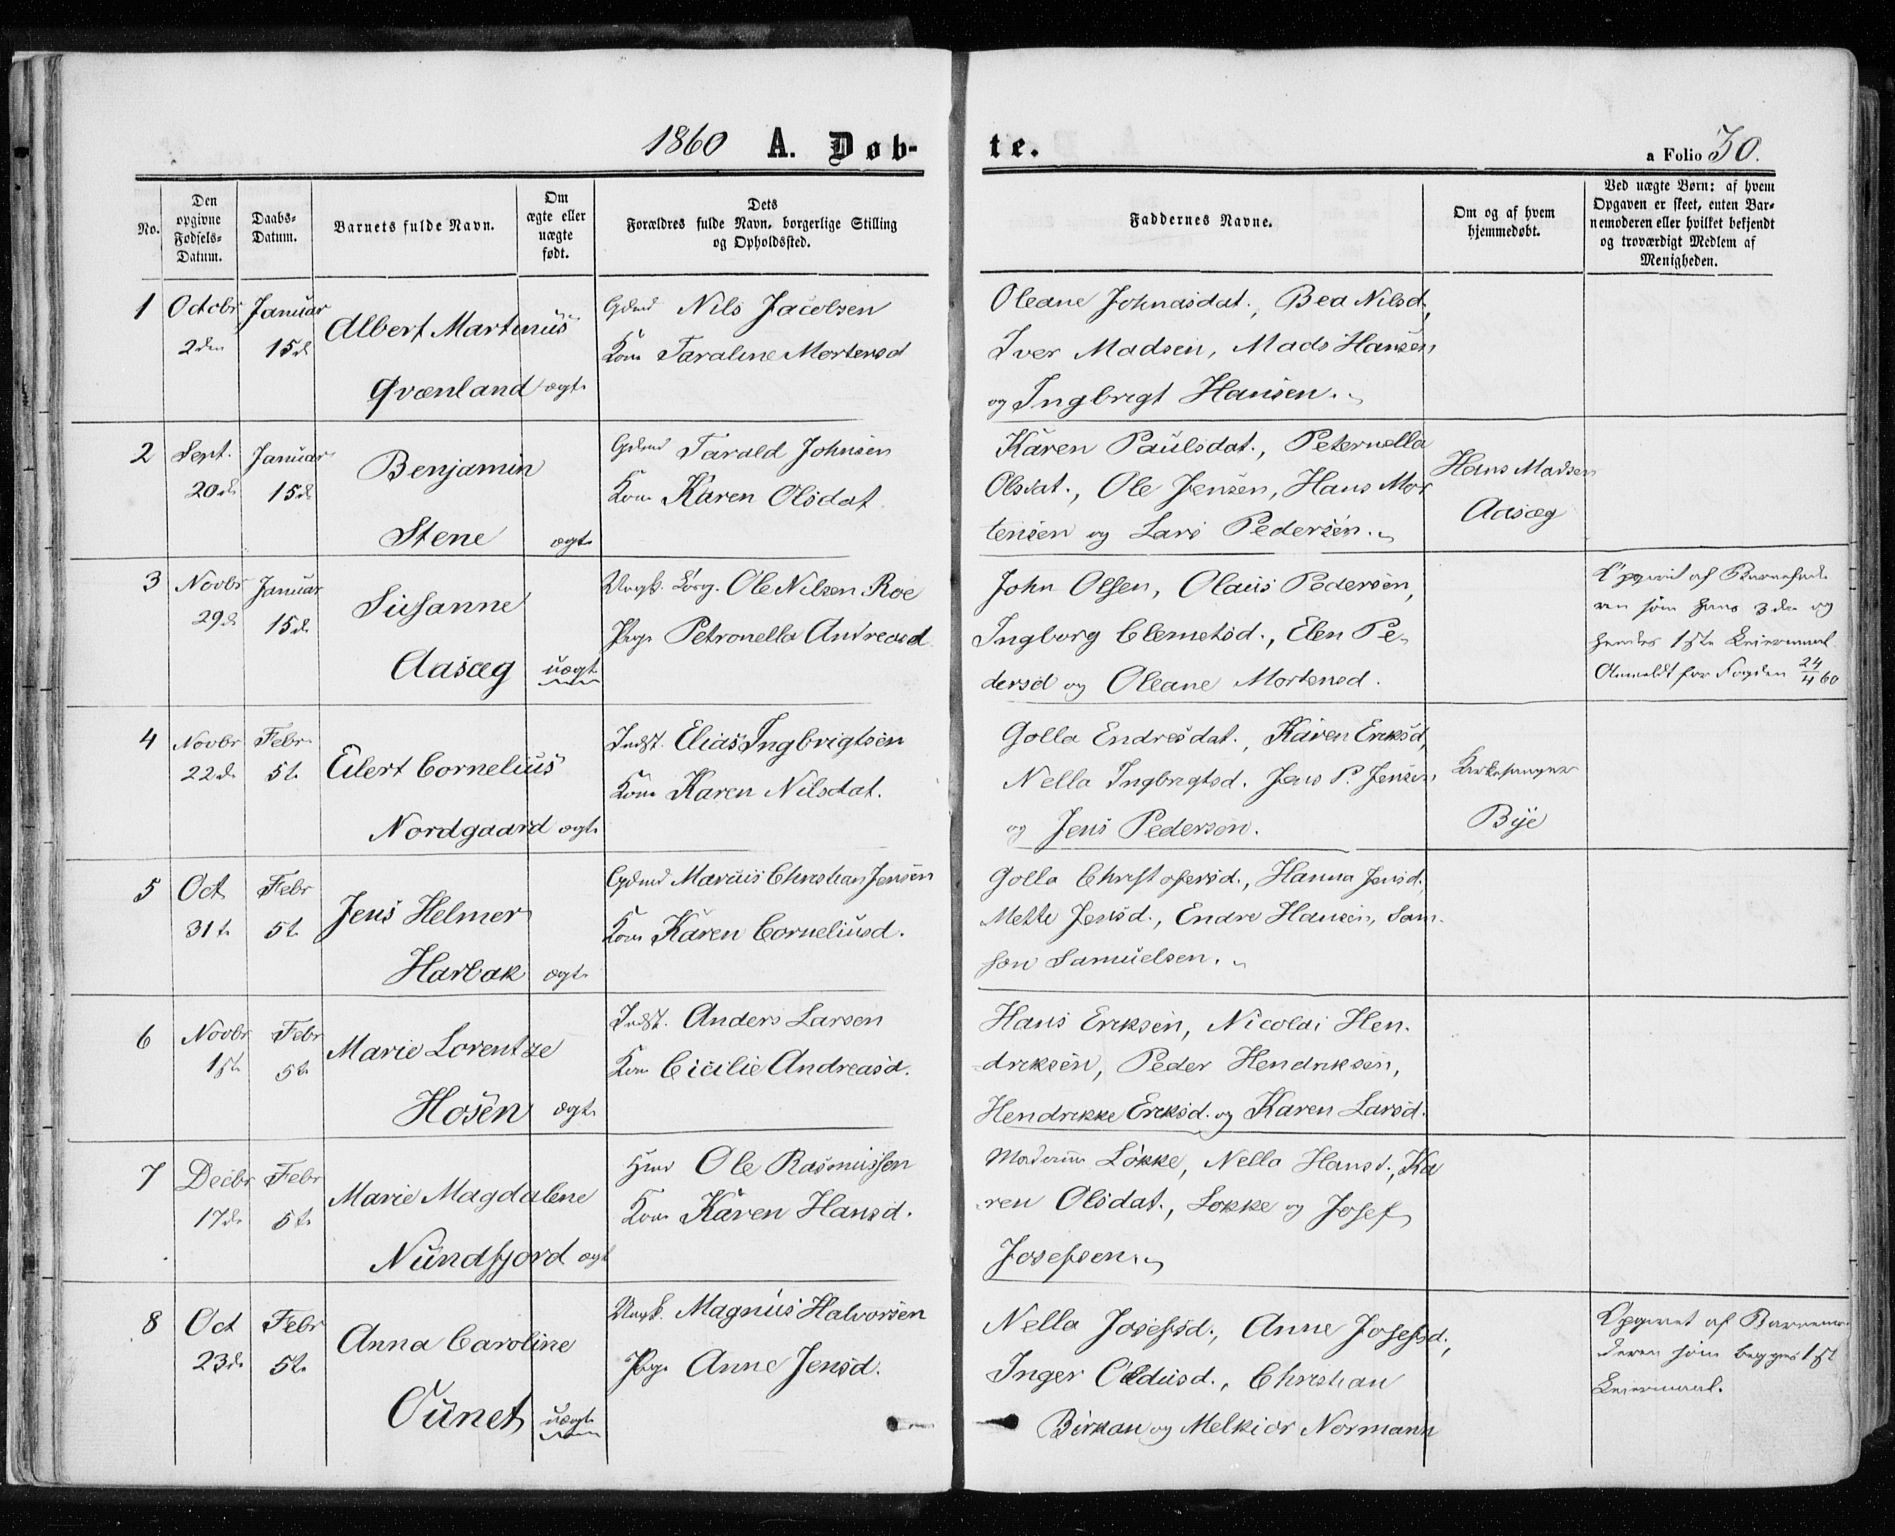 1860 A. Døb-
te.
a Folio 30.
No.
Den opgivne Fødsels-Datum.
Daabs-Datum.
Barnets fulde Navn.
Om ægte eller uægte født.
Dets Forældres fulde Navn, borgerlige Stilling og Opholdssted.
Faddernes Navne.
Om og af hvem hjemmedøbt.
Ved uægte Børn: af hvem Opgaven er skeet, enten Bar-nemoderen eller hvilket bekjendt og troværdigt Medlem af Menigheden.
1 Octobr Januar Albert Martinus Gdmd Nils Jacobsen Oleane Johnasdat., Bea Nilsd,
2den 15d Kone Taraline Mortensd Iver Madsen, Mads Hansen,
Qvænland ægt. og Ingbrigt Hansen.
2 Sept. Januar Benjamin Gdmd Tarald Johnsen Karen Paulsdat., Peternella Hans Madsen
20d. 15d Kone Karen Olsdat. Olsdat., Ole Jensen, Hans Mor Aasæg
Stene ægt. tensen og Lars Pedersen.
3 Novbr Januar Susanne Ungk. Ole Nilsen Roe John Olsen, Olaus Pedersen, Opgivet af Barnefad
29d. 15d. Pige Petronella Andreasd. Ingborg Clemetsd., Elen Pe- ren som hans 3die og
Aasæg uægt. dersd og Oleane Mortensd. hendes 1ste Leiermaal.
Anmeldt for Fogden 24/4 60
4 Novbr Febr. Eilert Cornelius Indst. Elias Ingbrigtsen Golla Endresdat., Karen Eriksd, Kirkesanger
22d. 5t. Kone Karen Nilsdat. Nella Ingbrigtsd. Jens P. Jensen,
Nordgaard ægt. og Jens Pedersen. Bye
5 Oct Febr Jens Helmer Gdmd Marius Christian Jensen Golla Christofersd., Hanna Jensd.
31t. 5t. Kone Karen Corneliusd. Mette Jensd., Endre Hansen, Sam-
Harbak ægt. son Samuelsen.
6 Novbr Febr Marie Lorentze Indst. Anders Larsen Hans Eriksen, Nicolai Hen-
1st. 5t. Kone Cicilie Andreasd. driksen, Peder Hendriksen,
Hosen ægt. Hendrikke Eriksd. og Karen Larsd.
7 Decbr Febr Marie Magdalene Hmd Ole Rasmussen Madame Løkke, Nella Hansd., Ka
17d. 5t. Kone Karen Hansd. ren Olsdat., Løkke og Josef
Nundfjord ægt Josefsen.
8 Oct Febr Anna Caroline Ungk. Magnus Halvorsen Nella Josefsd., Anne Josefsd., Opgivet af Barnemo
23d. 5t. Pige Anne Jensd. Inger Oldusd., Christian deren som begges 1st
Ounet uægt. Birkan og Melkior Normann Leiermaal.